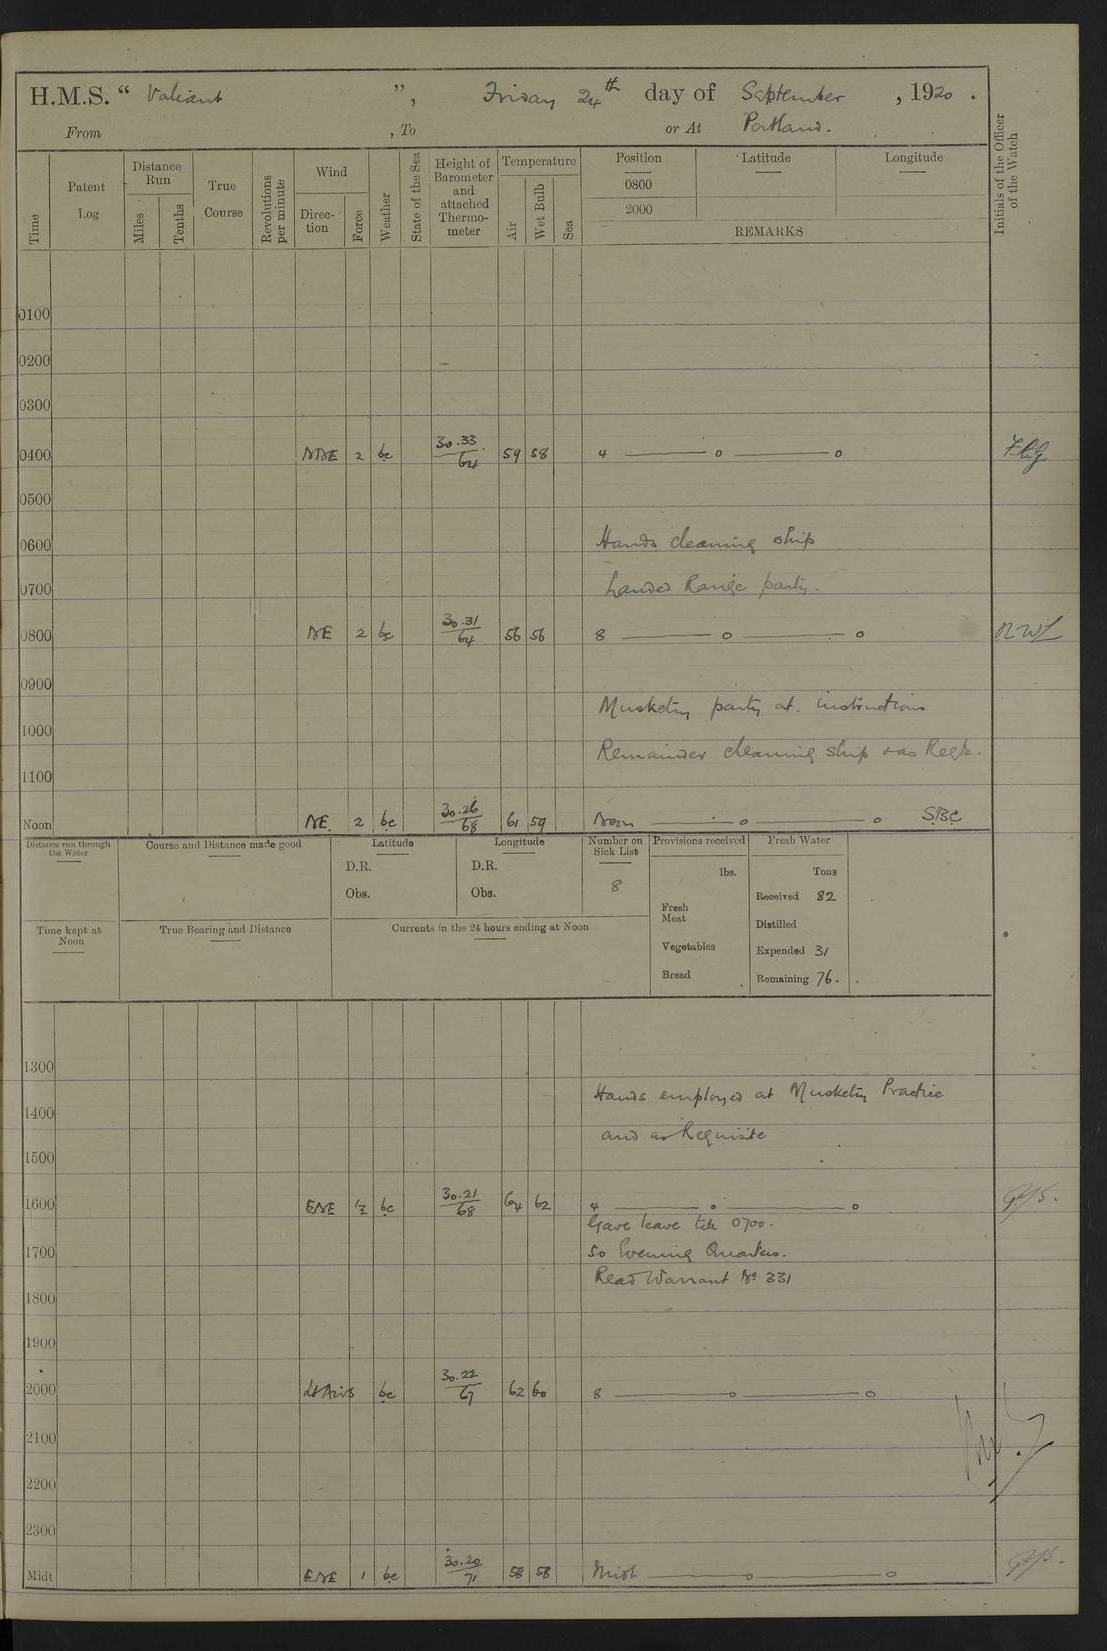 H.M.S. “ Valiant ”, Friday 24th day of September, 1920.
From , To or At Portland.
Time
Patent Log
Distance Run
Miles
Tenths
True Course
Revolutions per minute
Wind
Direction
Force
Weather
State of the Sea
Height of Barometer and attached Thermometer
Temperature
Air
Wet Bulb
Sea
Position
0800
2000
Latitude
Longitude
REMARKS
Initials of the Officer of the Watch
0100
0200
0300
0400 NNE 2 bc 30.33 64 59 58 4 — o — o
0500
0600 Hands cleaning ship
0700 Landed Range party.
0800 NE 2 bc 30.31 64 56 56 8 — o — o
0900
Musketry party at instructions
1000
Remainder cleaning ship & as Reqte.
1100
Noon NE. 2 bc 30.26 68 61 59 Noon — o — o SBC
Distance run through the Water
Course and Distance made good
Latitude
D.R.
Obs.
Longitude
D.R.
Obs.
Number on Sick List
8
Provisions received
lbs.
Fresh Meat
Vegetables
Bread
Fresh Water
Tons
Received 82
Distilled
Expended 31
Remaining 76.
Time kept at Noon
True Bearing and Distance
Currents in the 24 hours ending at Noon
1300
Hands employed at Musketry Practice
1400
and as Requisite
1500
1600 ENE bc 30.21 68 64 62 4 — o — o
Gave leave till 0700.
1700 Evening Quarters.
Read Warrant No 331
1800
1900
2000 Lt Airs bc 30.22 67 62 60 8 — o — o
2100
2200
2300
Midt ENE 1 bc 30.20 71 58 58 Midt — o — o